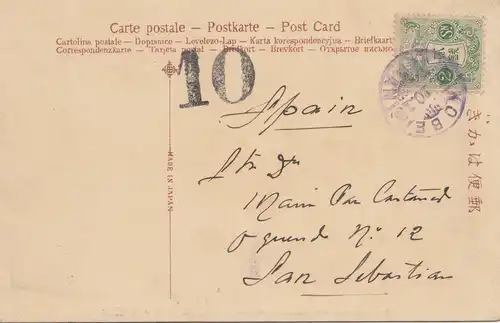 Carte postale — Postkarte — Post Card
Cartolina postale — Dopisnice — Levelezo-Lap — Karta korespondencyjna — Briefkaart
Correspondenzkarte — Tarjeta postal — Brefkort — Brevkort — Открытое письмо
10
KOBE
Spain
MADE IN JAPAN
郵便はかき
Sta Da
Maria
Oquendo N.º 12
San Sebastian